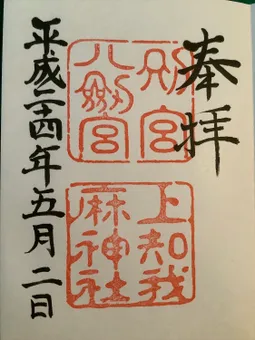 奉拝
別宮
八剣宮
上知我
麻神社
平成二十四年五月二日